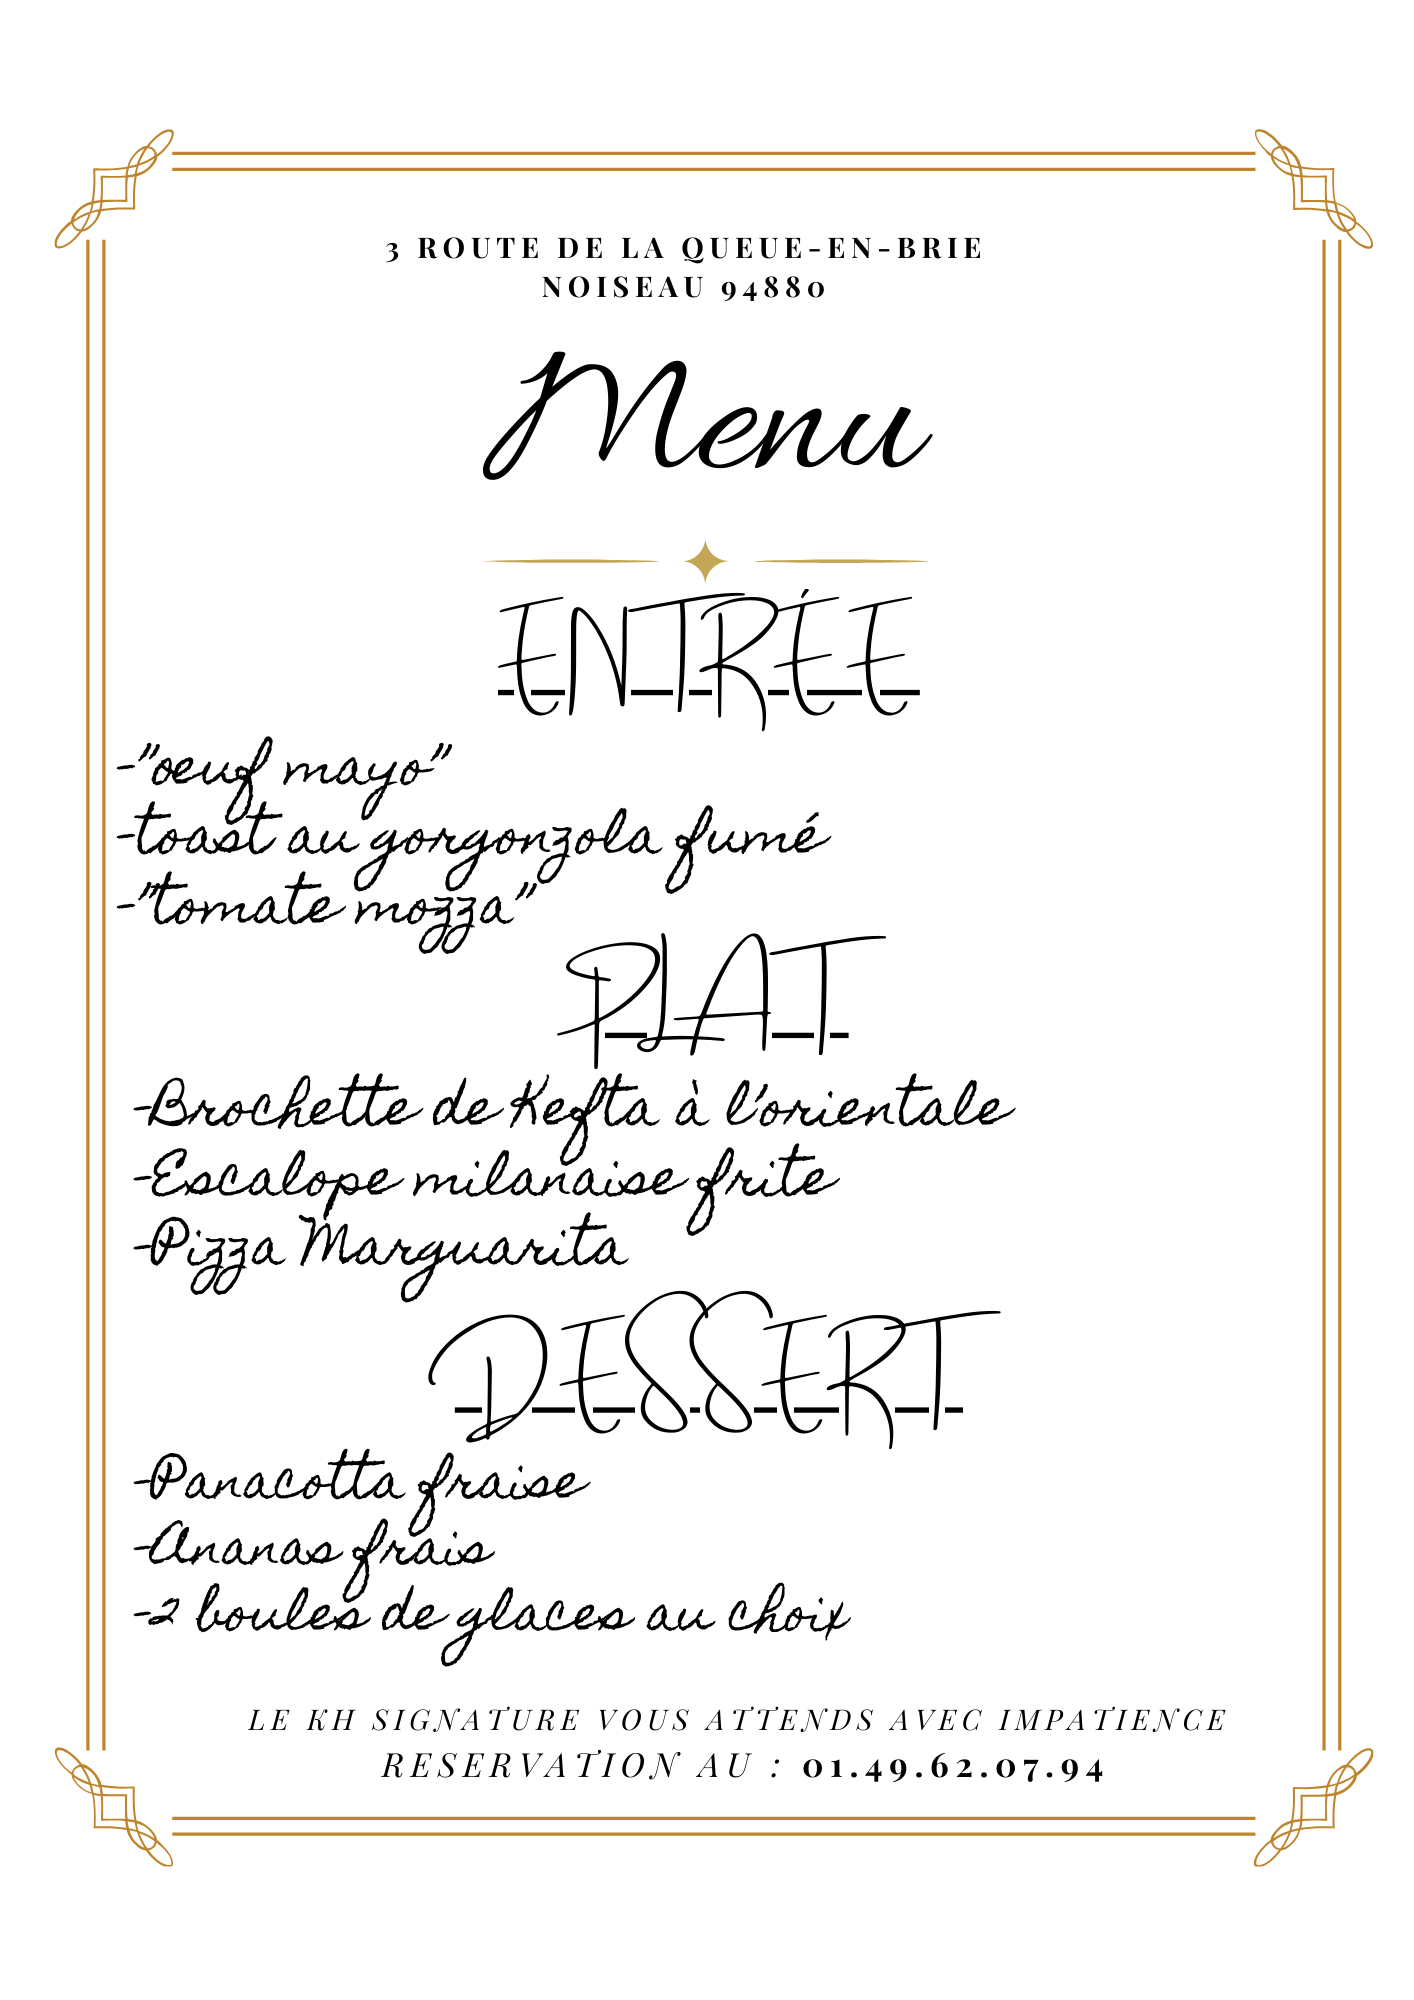 3 ROUTE DE LA QUEUE-EN-BRIE
NOISEAU 94880
Menu
ENTRÉE
-"oeuf mayo"
-toast au gorgonzola fumé
-"tomate mozza"
PLAT
-Brochette de Kefta à l'orientale
-Escalope milanaise frite
-Pizza Marguarita
DESSERT
-Panacotta fraise
-Ananas frais
-2 boules de glaces au choix
LE KH SIGNATURE VOUS ATTENDS AVEC IMPATIENCE
RESERVATION AU : 01.49.62.07.94